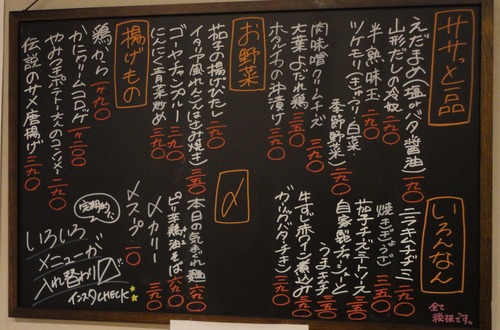 ササッと一品
えだまめ(塩orバタ醤油) 二九〇
山形だしの冷奴 二九〇
半熟味玉 一九〇
ツケモリ(キャベツ・白菜・季節野菜) 二九〇
肉味噌クリームチーズ 三九〇
大葉よだれ鶏 三五〇
ホタルイカの沖漬け 三九〇
お野菜
茄子の揚げびたし 三九〇
イタリア風れんこんはさみ焼き 三五〇
ゴーヤチャンプルー 三九〇
にんにく青菜炒め 三九〇
揚げもの
鶏から 一ケ九〇
かにクリームコロッケ 一ケ二三〇
やみつきポテト・大人のコンソメ 三九〇
伝説のサメ唐揚げ 三九〇
いろんなん
ニラキチヂミ 三九〇
焼きギョーザ 三五〇
茄子チーズミートソース 三九〇
自家製チャーシューとうまキムチ 三九〇
牛すじ赤ワイン煮込み
ガーリックバターチキン
〆
本日の気まぐれ麺 六九〇
ピリ辛鶏油そば 六九〇
〆カリー 三九〇
〆スープ 一〇〇
定期的に
いろいろ
メニューが
入れ替わり〼
インスタCHECK
全て
税抜です。